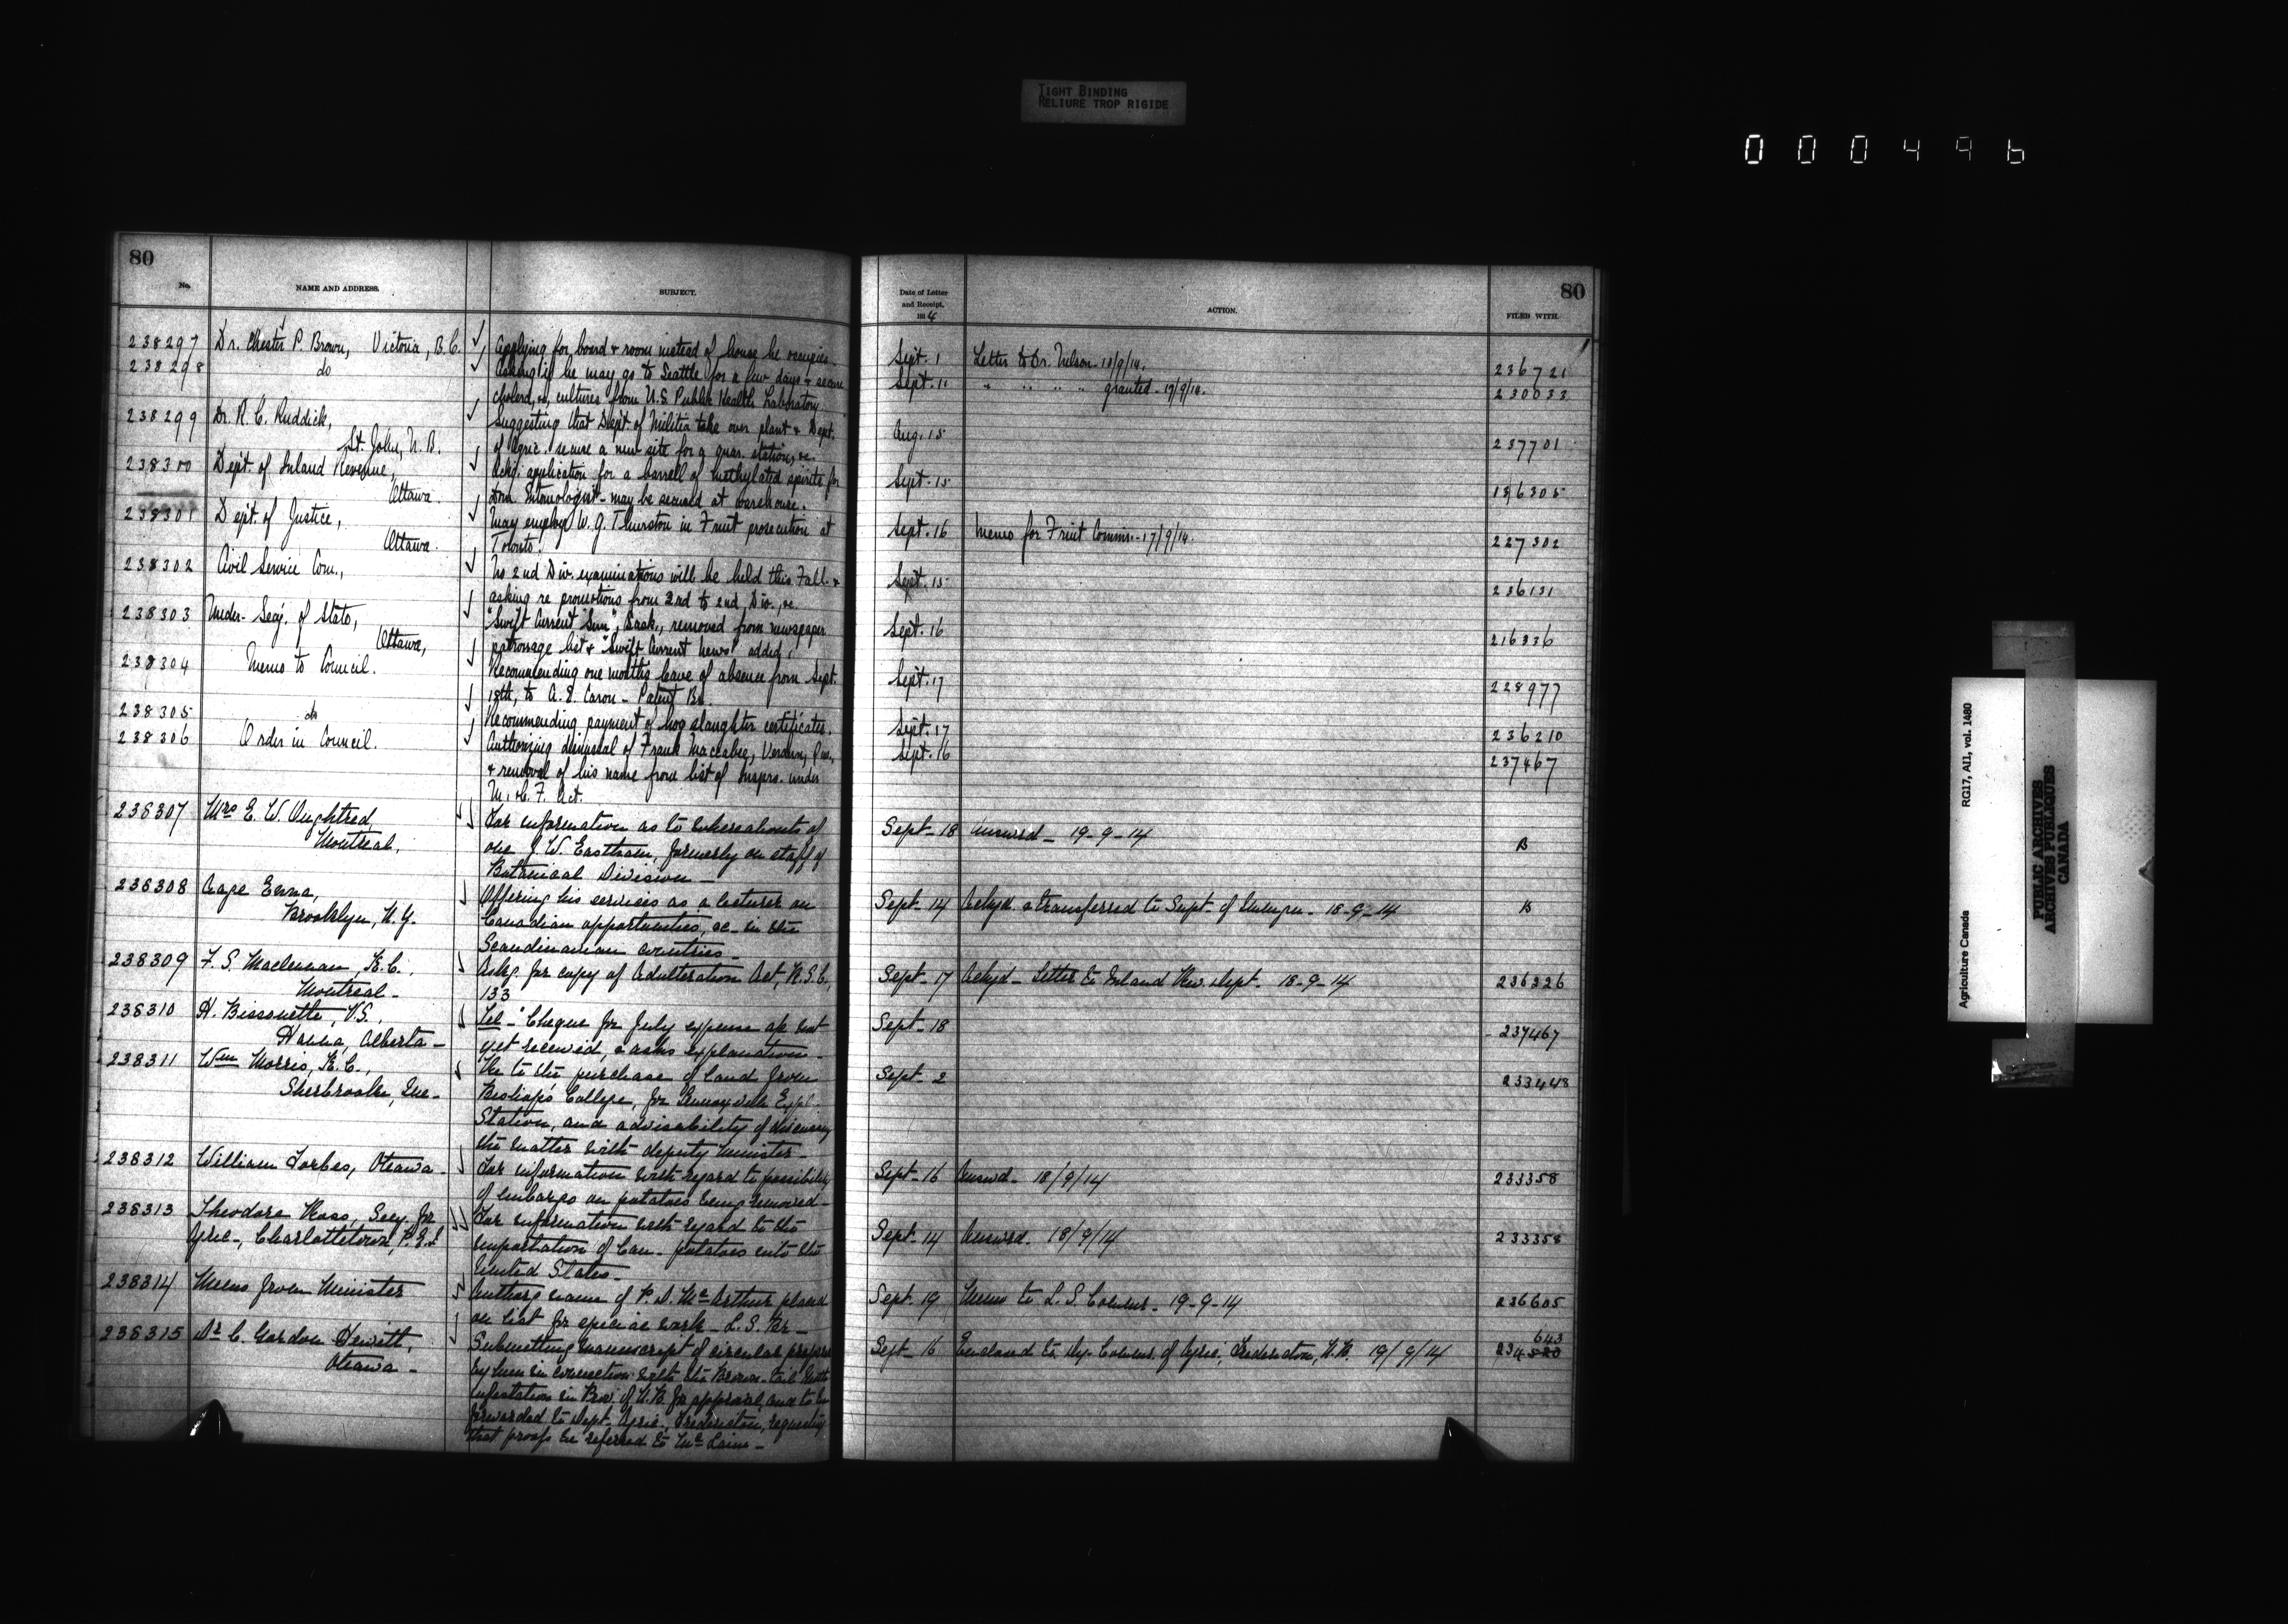 TIGHT BINDING
RELIURE TROP RIGIDE
000496
80
No.
NAME AND ADDRESS.
SUBJECT.
238297 Dr. Chester P. Brown, Victoria, B.C. Applying for board & room instead of house he occupies.
238298 do Asking if he may go to Seattle for a few days & secure
cholera, &c, cultures from U.S. Public Health Laboratory
238299 Dr. R. C. Ruddick, Suggesting that Dept. of Militia take over plant & Dept.
St. John, N.B. of Agric. secure a new site for a quar. station, &c.
238300 Dept. of Inland Revenue, Ackg. application for a barrell of methylated spirits for
Ottawa. Dom. Entomologist - may be secured at warehouse.
238301 Dept. of Justice, May employ W. G. Thurston in Fruit prosecution at
Ottawa. Toronto.
238302 Civil Service Com., No 2nd Div. examinations will be held this Fall &
asking re promotions from 2nd to 2nd Div., &c.
238303 Under-Secy. of State, "Swift Current Sun", Sask., removed from newspaper
Ottawa, patronage list & "Swift Current News" added.
238304 Memo to Council. Recommending one months leave of absence from Sept.
18th, to A. E. Caron - Patent Br.
238305 do Recommending payment of hog slaughter certificates.
238306 Order in Council. Authorizing dismissal of Frank Maccabee, Verdun, Que.,
& removal of his name from list of Insprs. under
M. & C. F. Act.
238307 Mrs E. W. Oughtred, For information as to whereabouts of
Montreal, one J. W. Eastham, formerly on staff of
Botanical Division -
238308 Aage Brooklyn, N.Y. Offering his services as a lecturer on
Canadian opportunities, &c - in the
Scandinavian countries -
238309 F. S. Maclennan, K.C., Askg. for copy of Adulteration Act, R.S.C.,
Montreal - 133
238310 H. Bissonette, V.S., Tel - "Cheque for July expense a/c not
Hanna, Alberta - yet received, & asks explanation -
238311 Wm Morris, K.C., Re to the purchase of land from
Sherbrooke, Que - Bishop's College, for Lennoxville Exptl.
Station, and advisability of discussing
the matter with deputy Minister -
238312 William Forbes, Ottawa - For information with regard to possibility
of embargo on potatoes being removed -
238313 Theodore Ross, Secy. for For information with regard to the
Agric -, Charlottetown, P.E.I importation of Can - potatoes into the
United States -
238314 Memo from Minister Authorg name of P. D. McArthur placed
on list for special work - L. S. Br -
238315 Dr C. Gordon Hewitt, Submitting manuscript of circular prepared
Ottawa - by him in connection with the Brown-tail Moth
infestation in Prov. of N.B. for approval, and to be
forwarded to Dept. Agric., Fredericton, requesting
that proofs be referred to Mc Laine -
80
Date of Letter
and Receipt,
1914
ACTION.
FILED WITH.
Sept. 1 Letter to Dr. Nelson - 18/9/14. 236721
Sept. 11 " " " " granted - 17/9/14. 230033
Aug. 15 237701
Sept. 15 186305
Sept. 16 Memo for Fruit Commr. - 17/9/14. 227302
Sept. 15 236131
Sept. 16 216336
Sept. 17 228977
Sept. 17 236210
Sept. 16 237467
Sept - 18 Answrd - 19-9-14 B
Sept - 14 Ackgd. & transferred to Supt. of Immgrn - 18-9-14 B
Sept - 17 Ackgd - Letter to Inland Rev. Dept. 18-9-14 236226
Sept - 18 237467
Sept - 2 233448
Sept - 16 Answd - 18/9/14 233358
Sept - 14 Answrd - 18/9/14 233358
Sept - 19 Memo to L. S. Commr. - 19-9-14 236605
Sept - 16 Enclosed to Dy. Commr. of Agric., Fredericton, N.B. 19/9/14 234520 643
Agriculture Canada RG17, AII, vol. 1480
PUBLIC ARCHIVES
ARCHIVES PUBLIQUES
CANADA